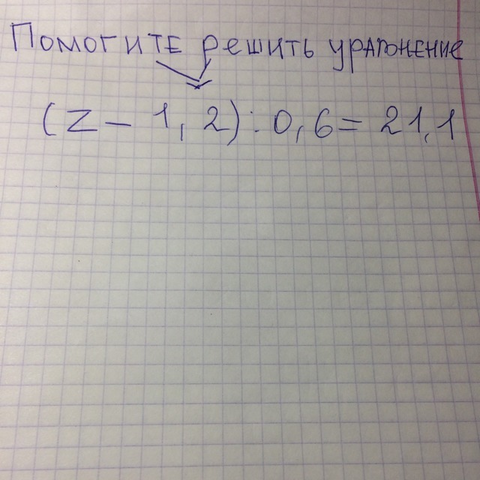 Помогите решить урагонение
(Z - 1,2) : 0,6 = 21,1